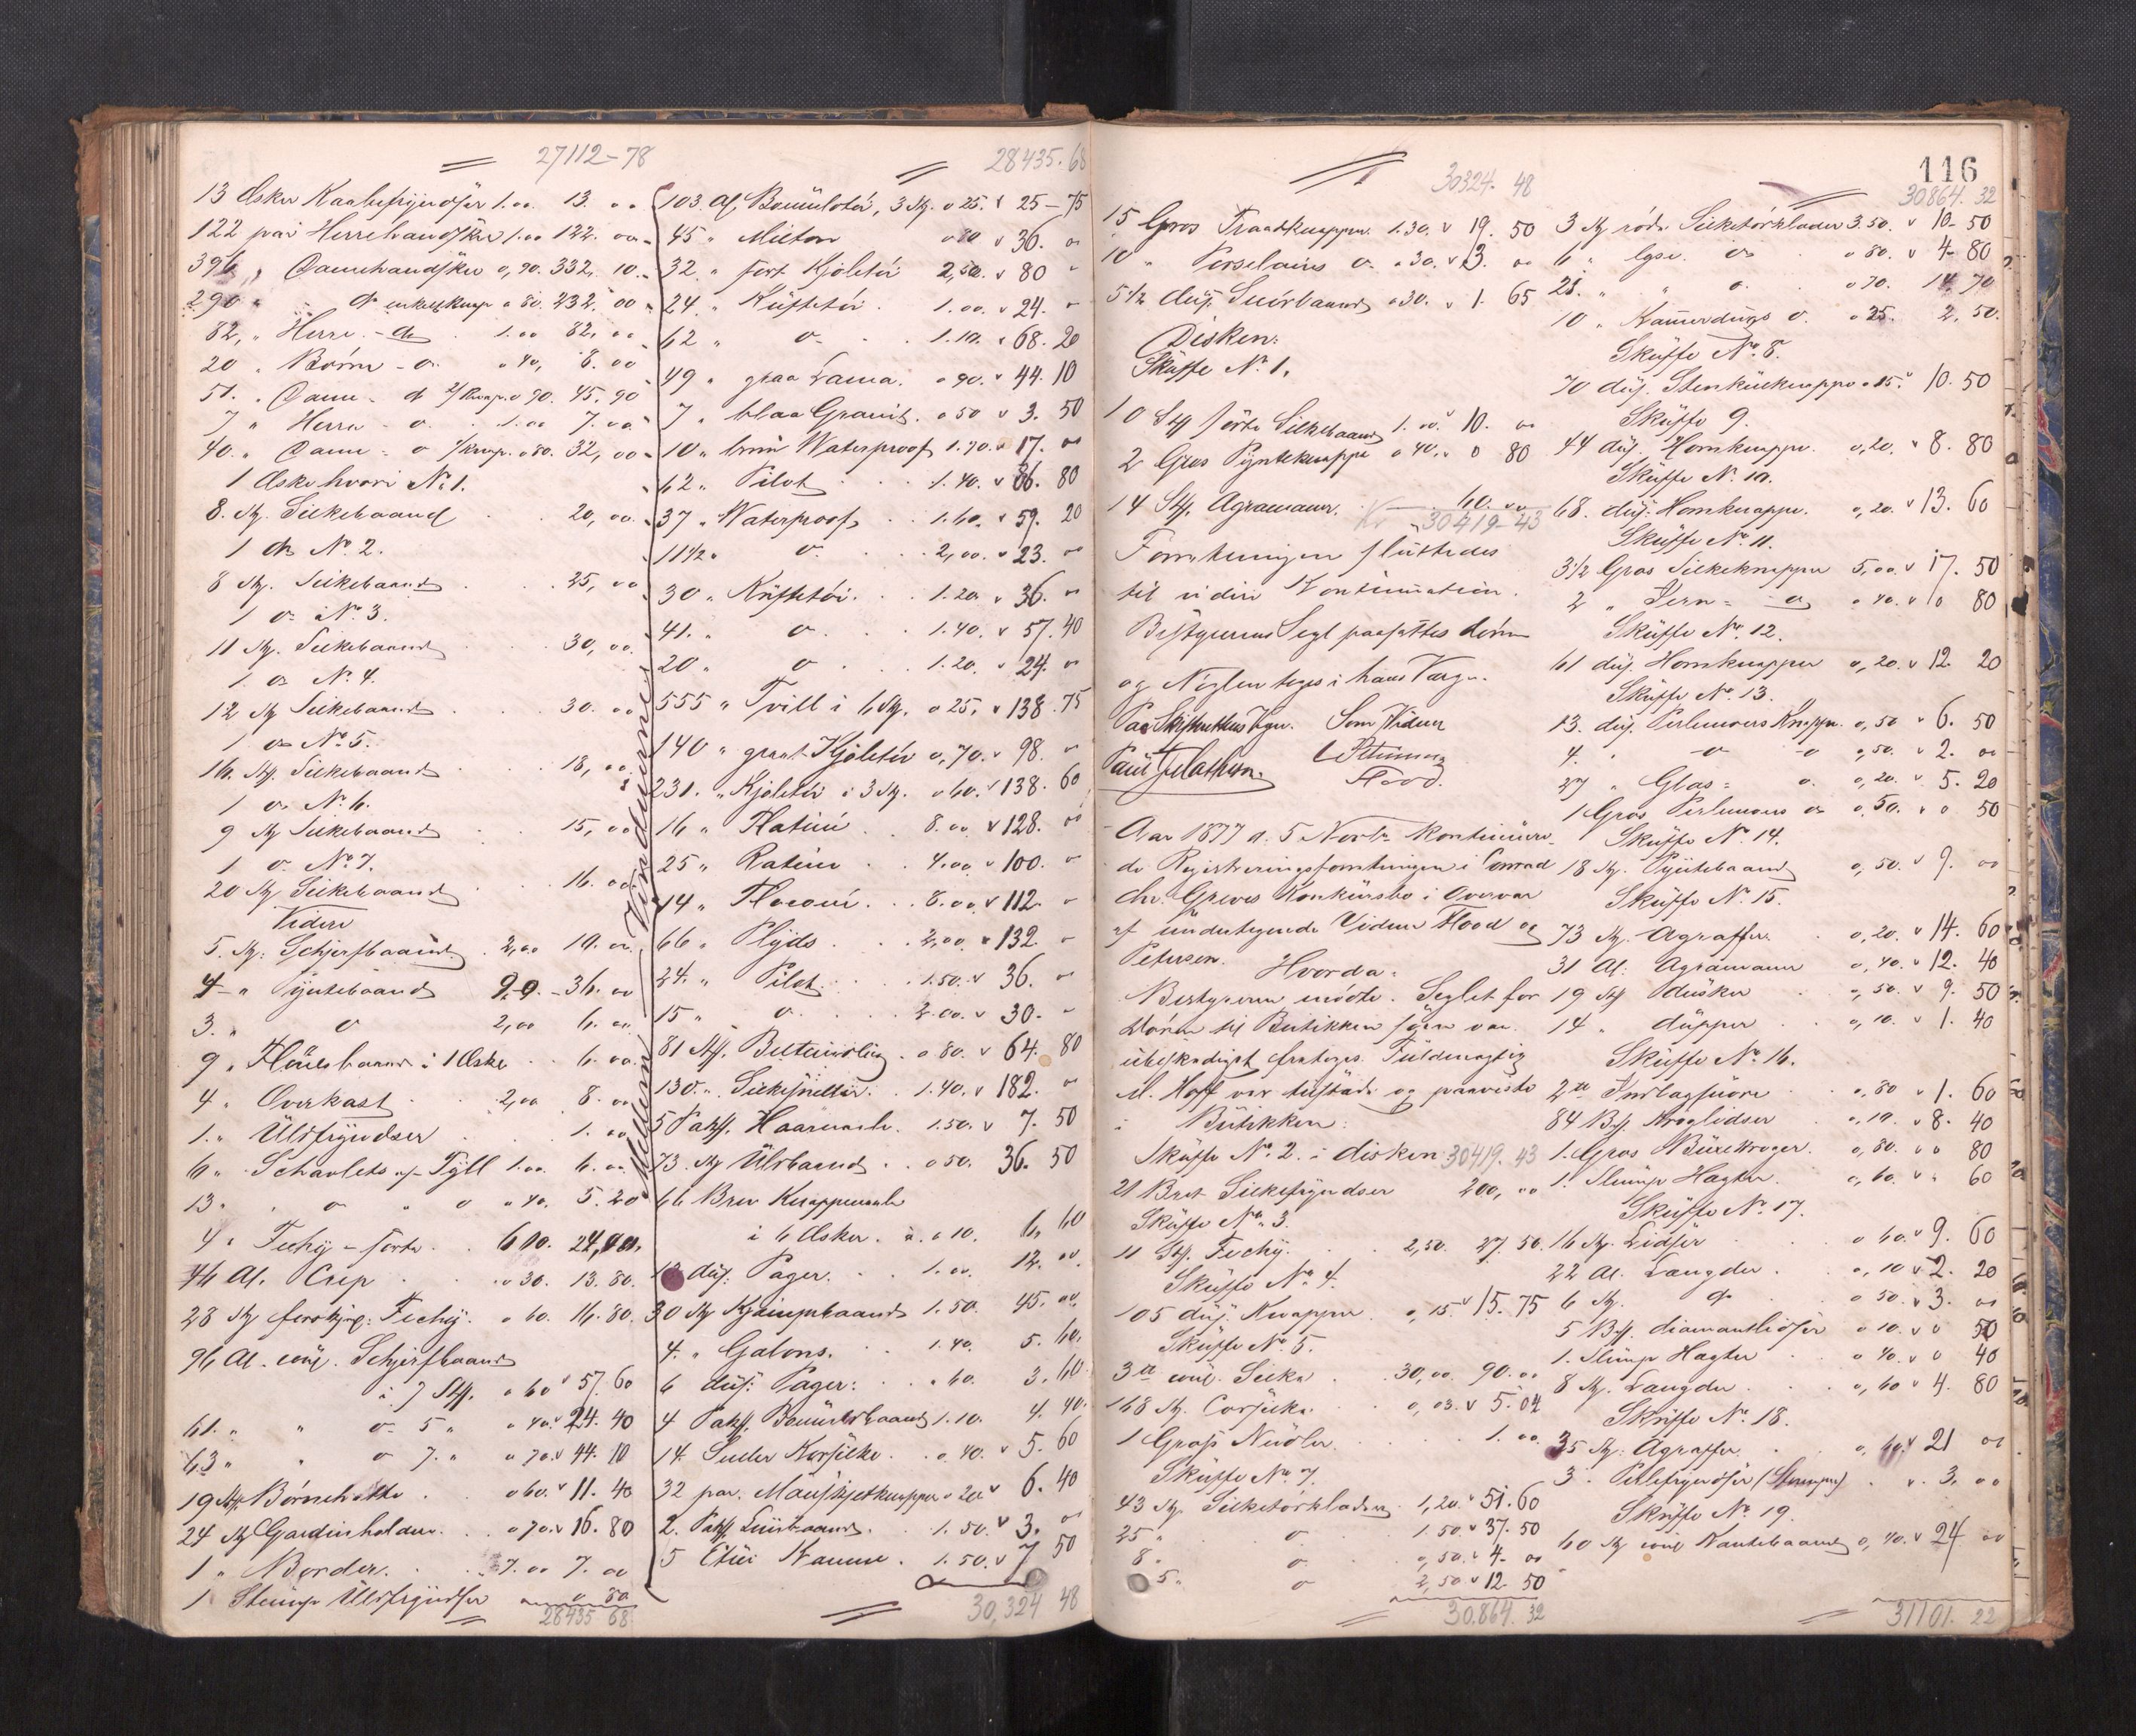 27112-78
13 Æsker Kaabefryndser 1.00 13. 00
122 par Herrehandsker 1.00 122. 00
396 " Damehandsker 0,90. 332. 10
290 " " do enkeltknap 0 80. 232. 00
82 " Herre - do 1.00 82. 00
20 " Børne - do 0 40, 8. 00
51. " Dame - do 2/Knap. 0 90. 45. 90
7 " Herre - do 1.00 7. 00
40. " Dame - do 1/knap. 0 80. 32, 00
1 Æske hvori No 1.
8. Stk. Silkebaand 20, 00
1 do No 2.
8 Stk. Silkebaand 25, 00
1 do No 3.
11 Stk. Silkebaand 30, 00
1 do No 4.
12 Stk Silkebaand 30. 00
1 do No 5.
16. Stk. Silkebaand 18, 00
1 do No 6.
9 Stk Silkebaand 15, 00
1 do No 7.
20 Stk Silkebaand 16. 00
Videre
5. Stk. Schjerfbaand 2,00 10. 00
4 " Pyntebaand 9.0. 36. 00
3. " do 2,00 6. 00
9 " Fløielsbaand i 1 Æske 6. 00
4 " Overkast 2,00 8. 00
1. " Uldfryndser 1. 00
6 " Schavlets af Tyll 1.00 6. 00
13 " do " do 0 40, 5. 20
4 " Fichy - sorte 6 00. 24,00
46 Al. Crep 0 30. 13. 80
28 Stk forskjel: Fichy. 0 60. 16. 80
96 Al. coul. Schjerfbaand
i 7 Stk. 0 60 57. 60
61. " " do 5 " 0 40. 24. 40
63 " " do 7. " 0 70. 44. 10
19 Stk. Børnehatte 0 60. 11. 40
24 Stk Gardinholdere 0 70. 16. 80
1 " Border. 7. 00 7. 00
1 Slump Uldfryndser 0 80
28435 68
28435. 68
103. Al. Bomuldstøi, 3 Stk. 0 25. 25-75
45 " Milton 0 80 36. 00
32. " sort Kjoletøi 2,50. 80
24 " Kaabetøi 1.00. 24.
62 " do 1.10. 68. 20
49 " graa Lama. 0 90. 44. 10
7 " blaa Granit. 0 50 3. 50
10 " brun Waterproof 1.70. 17. 00
62 " Pilot 1. 40. 86. 80
37 " Waterproof 1.60. 59. 20
11 1/2 " do 2,00. 23. 00
30 " Kaabetøi. 1.20. 36.
41. " do 1.40. 57. 40
20 " do 1.20. 24.
555 " Tvill i 6 Stk. 0 25. 138. 75
140 " graat Kjoletøi 0,70. 98.
231. " Kjoletøi i 3 Stk. 0 60. 138. 60
16 " Flatiné 8. 00 128. 00
25 " Ratiné 4.00 100.
14 " Floconé 8.00. 112.
66 " Plyds 2,00 132.
24. " Pilot 1.50. 36.
15 " do 2.00. 30.
81 Stk. Belteindlæg 0 80. 64. 80
130. " Silkefilletter 1.40. 182.
5 Pakk. Haarnaale 1.50. 7. 50
73. Stk Uldbaand 0 50. 36. 50
66 Brev Knappenaale
i 6 Æsker. à. 0 10. 6, 60
12 dus: Pager. 1.00. 12. 00
30 Stk Kjæmpebaand 1.50. 45. 00
4. " Galons. 1.40. 5. 60
6 dus: Pager: 0 60. 3. 60
4 Pakk. Bomuldsbaand 1.10. 4. 40
14 Snelder Korsilke 0. 40. 5. 60
32 par. Manskjetknapper 0 20 6. 40
2. Pakk. Lintbaand. 1. 50. 3. 00
5 Etui Kamme. 1.50. 7 50
30,324 48
Mellem Vinduerne
116
30324. 48
15 Gros Traadknapper 1.30. 19. 50
10 " Porselains do 0 30. 3. 00
5 1/2 dus. Snørbaand 0 30. 1. 65
Disken:
Skuffe No 1.
10 Stk sorte Silkebaand 1.00 10. 00
2 Gros Pynteknappe 0 40. 0 80
14 Stk. Agramaner. 60. 00
Kr 30419-43
Forretningen sluttedes
til videre Kontinuation.
Bestyrerens Segl paasattes døren
og Nøglen toges i hans Værge.
Paa Skifterettens Vegne. Som Vidner
Petersen
Flood.
Aar 1877 d. 5 Novbr kontinuere-
de Registreringsforretningen i Conrad
Chr. Greves Konkursbo i Overvær
af undertegnede Vidner Flood og
Petersen.
Hvorda:
Bestyreren mødte. Seglet for
døren til Butikken som var
ubeskadiget fratoges. Fuldmægtig
M. Hoff var tilstæde og paaviste
i Butikken:
Skuffe No 2. i disken 30419. 43
21 Bret Silkefryndser 200, 00
Skuffe No 3.
11 Stk. Fichy. 2,50. 27. 50
Skuffe No 4.
105 dus. Knapper 0,15 15. 75
Skuffe No 5.
3 coul. Silke 30,00 90. 00
168 Stk. Corsilke. 0, 03. 5. 04
1 Gross Naaler. 1. 00
Skuffe No 7.
43 Stk. Silketørklæder 1,20. 51. 60
25 " do 1.50. 37. 50
8 " do 0,50. 4. 00
5 " do 2,50 12. 50
30,864. 32
30864. 32
3 Stk røde Silketørklæder 3.50. 10. 50
6 " lyse do 0 80. 4. 80
21. " " do 0 70. 14. 70
10 " Kamerdugs do 0 25. 2. 50.
Skuffe No 8.
70 dus. Stenkulknappe 0 15. 10. 50
Skuffe 9.
44 dus. Hornknappe. 0,20. 8. 80
Skuffe No 10.
68. dus: Hornknappe. 0, 20. 13. 60
Skuffe No 11.
3 1/2 Gros Silkeknapper 5,00. 17. 50
2 " Jern = do 0 40. 0 80
Skuffe No 12.
61 dus. Hornknapper 0, 20. 12. 20
Skuffe No 13.
13. dus. Perlemors Knapper. 0, 50 6. 50
4. " do do 0,50. 2. 00
27 " Glas = do 0,20. 5. 20
1 Gros Perlemors do 0,50. 0 50
Skuffe No 14.
18 Stk. Pyntebaand 0, 50. 9. 00
Skuffe No 15.
73 Stk. Agraffer. 0, 20. 14. 60
31 Al: Agramaner 0, 40. 12. 40
19 Stk duske 0, 50. 9. 50
14 " dupper 0, 10. 1. 40
Skuffe No 16.
2 Indlagsnore 0, 80 1. 60
84 Bk. Kroglidser 0, 10. 8. 40
1. Gros Buxekroger. 0, 80. 0 80
1. Slump Hagter. 0, 60. 60
Skuffe No 17.
16 Stk. Lidser 0 60. 9. 60
22 Al. Langder. 0, 10 2. 20
6 Stk. do 0 50. 3. 00
5 Bk. diamantlidser 0 10. 0 50
1. Slump Hagter 0 40. 0 40
8 Stk. Langder. 0, 60 4. 80
Skuffe No 18.
35 Stk: Agraffer. 0, 60. 21 00
3. Perlefryndser (Stumper) 3, 00
Skuffe No 19.
60 Stk coul Kantebaand 0, 40. 24 00
31101. 22